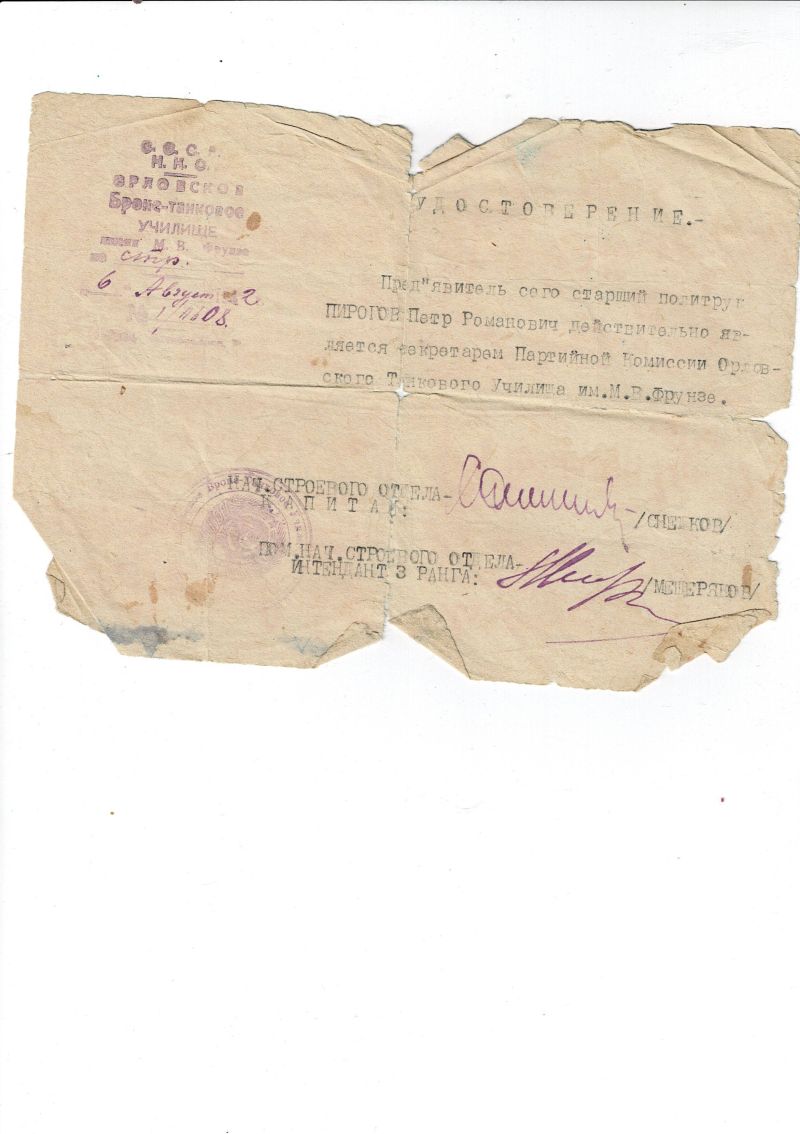 С. С. С. Р.
Н. К. О.
ОРЛОВСКОЕ
Броне-танковое
УЧИЛИЩЕ
имени М. В. Фрунзе
стр.
6 Август 2
УДОСТОВЕРЕНИЕ.-
Пред"явитель сего старший политрук
ПИРОГОВ Петр Романович действительно яв-
ляется секретарем Партийной Комиссии Орлов-
ского Танкового Училища им.М.В.Фрунзе.
НАЧ.СТРОЕВОГО ОТДЕЛА-
КАПИТАН:
/СНЕШКОВ/
ПОМ.НАЧ.СТРОЕВОГО ОТДЕЛА-
ИНТЕНДАНТ 3 РАНГА:
/МЕЩЕРЯКОВ/